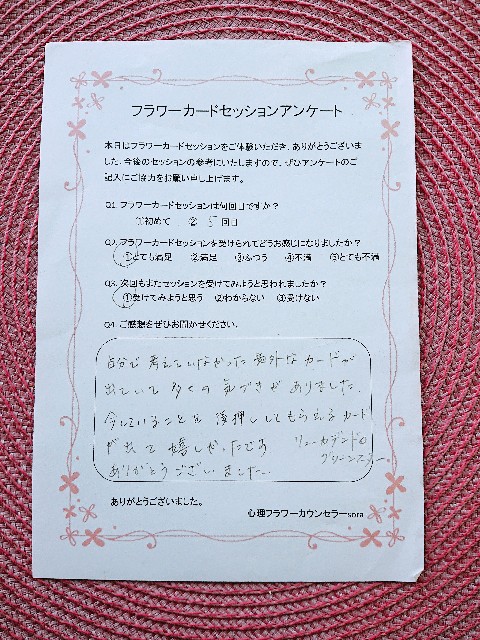 フラワーカードセッションアンケート
本日はフラワーカードセッションをご体験いただき、ありがとうございま
した。今後のセッションの参考にいたしますので、ぜひアンケートのご
記入にご協力をお願い申し上げます。
Q1. フラワーカードセッションは何回目ですか？
①初めて ② 5 回目
Q2. フラワーカードセッションを受けられてどうお感じになりましたか？
①とても満足 ②満足 ③ふつう ④不満 ⑤とても不満
Q3. 次回もまたセッションを受けてみようと思われましたか？
①受けてみようと思う ②わからない ③受けない
Q4. ご感想をぜひお聞かせください。
自分で考えていなかった意外なカードが
出ていて多くの気づきがありました。
今していることを後押ししてもらえるカード
が出て嬉しかったです
リューカデンドロ
グリーンスター
ありがとうございました。
ありがとうございました。
心理フラワーカウンセラーsora